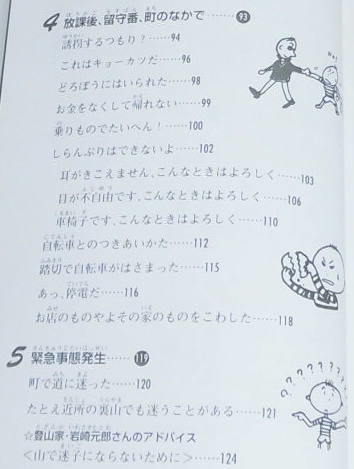 4 放課後、留守番、町のなかで……93
誘拐するつもり?……94
これはキョーカツだ……96
どろぼうにはいられた……98
お金をなくして帰れない……99
乗りものでたいへん!……100
しらんぷりはできないよ……102
耳がきこえません、こんなときはよろしく……103
目が不自由です、こんなときはよろしく……106
車椅子です、こんなときはよろしく……110
自転車とのつきあいかた……112
踏切で自転車がはさまった……115
あっ、停電だ……116
お店のものやよその家のものをこわした……118
5 緊急事態発生……119
町で道に迷った……120
たとえ近所の裏山でも迷うことがある……121
☆登山家・岩崎元郎さんのアドバイス
<山で迷子にならないために>……124